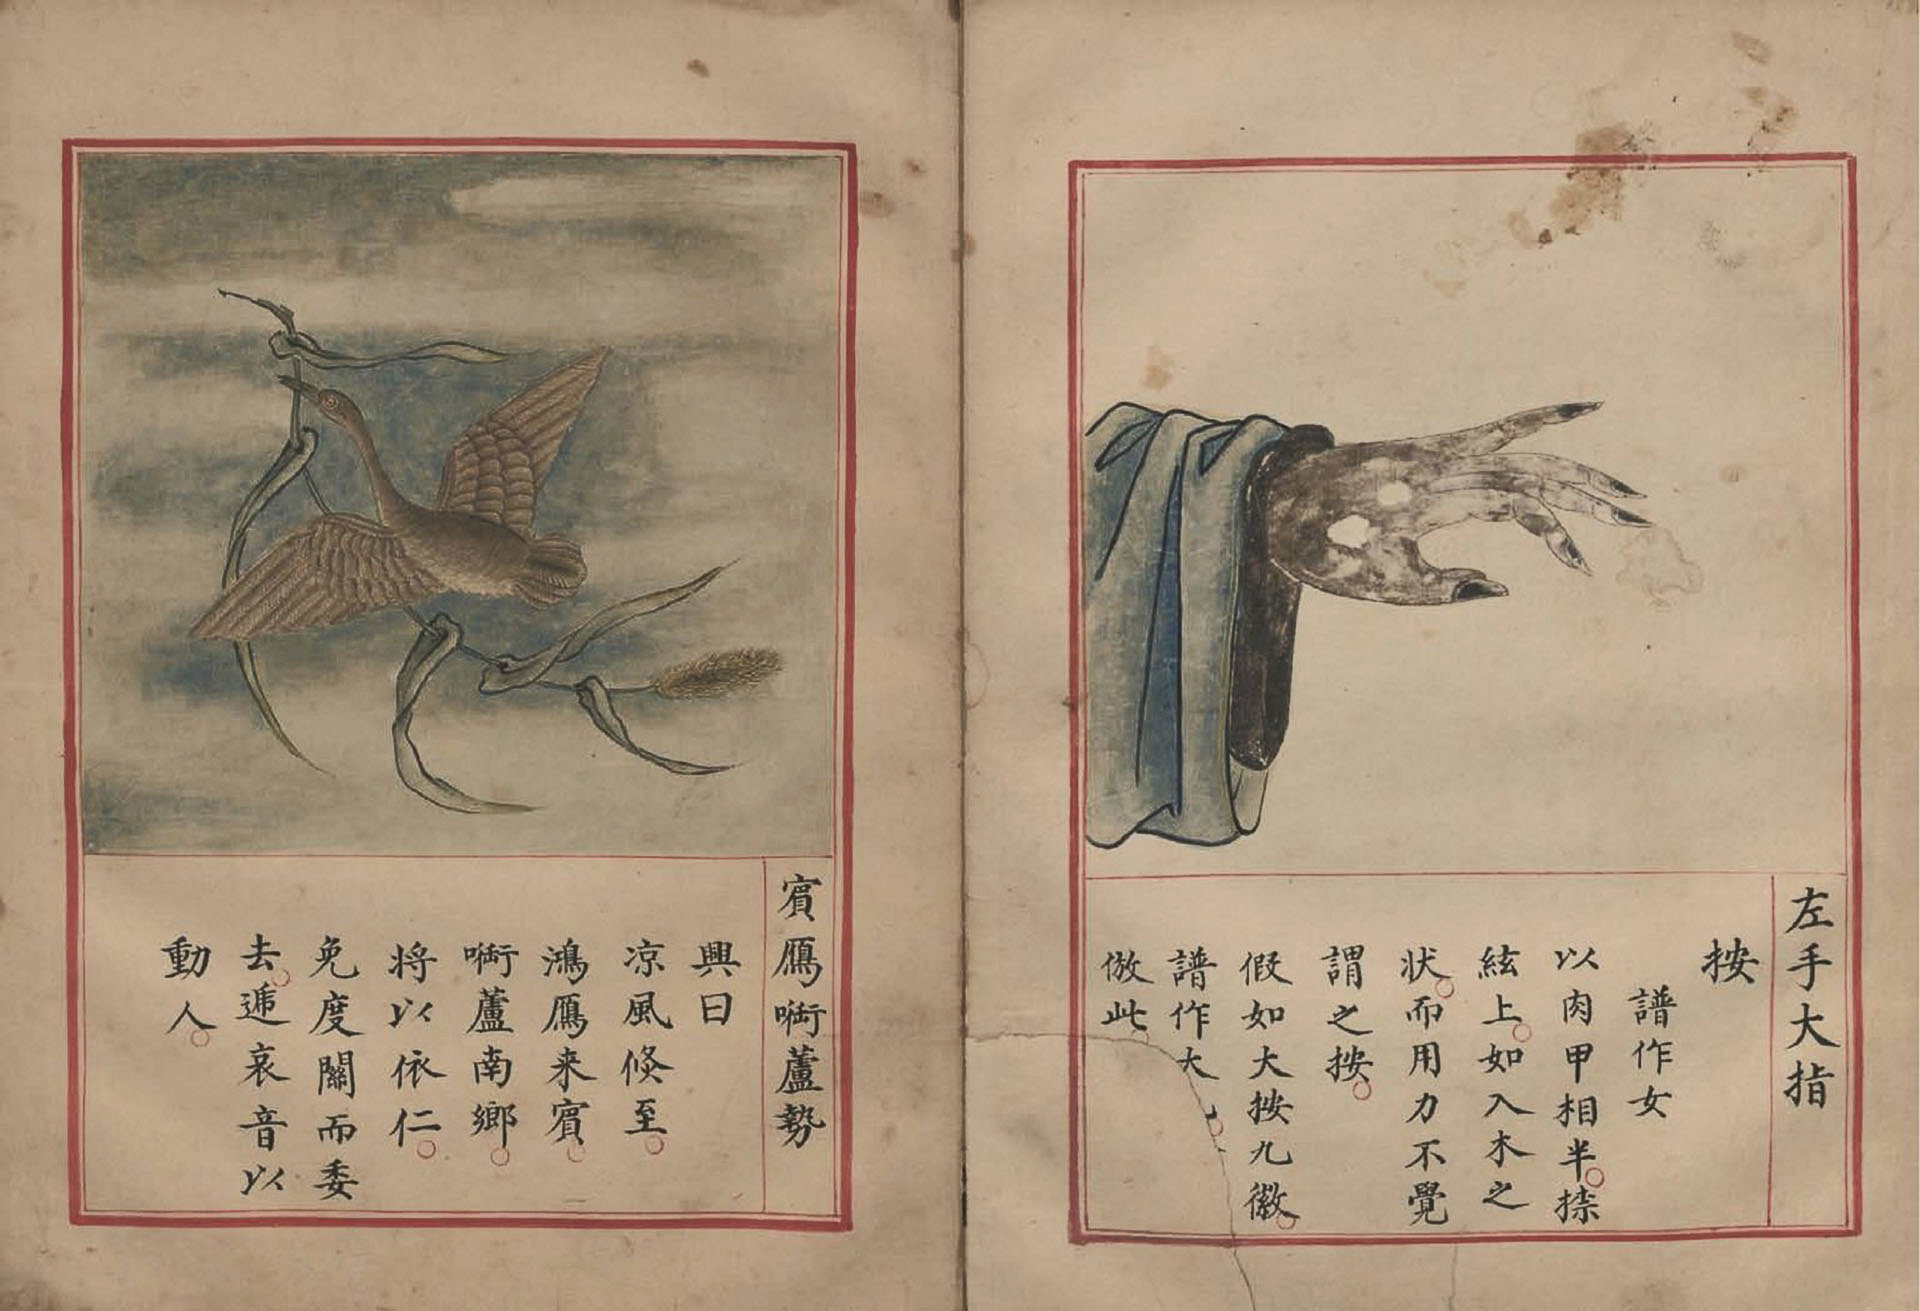 左手大指
按
譜作女
以肉甲相半。捺
絃上。如入木之
状。而用力不覺
謂之按。
假如大按九徽。
譜作大
倣此。
賔鴈啣蘆勢
興曰
凉風倐至。
鴻鴈来賔。
啣蘆南鄉。
将以依仁。
免度關而委
去。遞哀音以
動人。